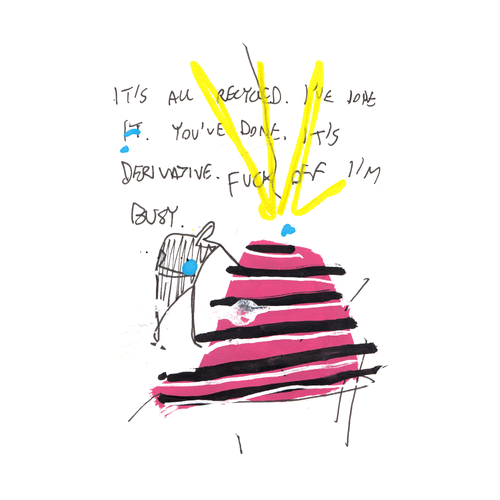 IT'S ALL RECYCLED. I'VE DONE
IT. YOU'VE DONE. IT'S
DERIVATIVE. FUCK OFF I'M
BUSY.